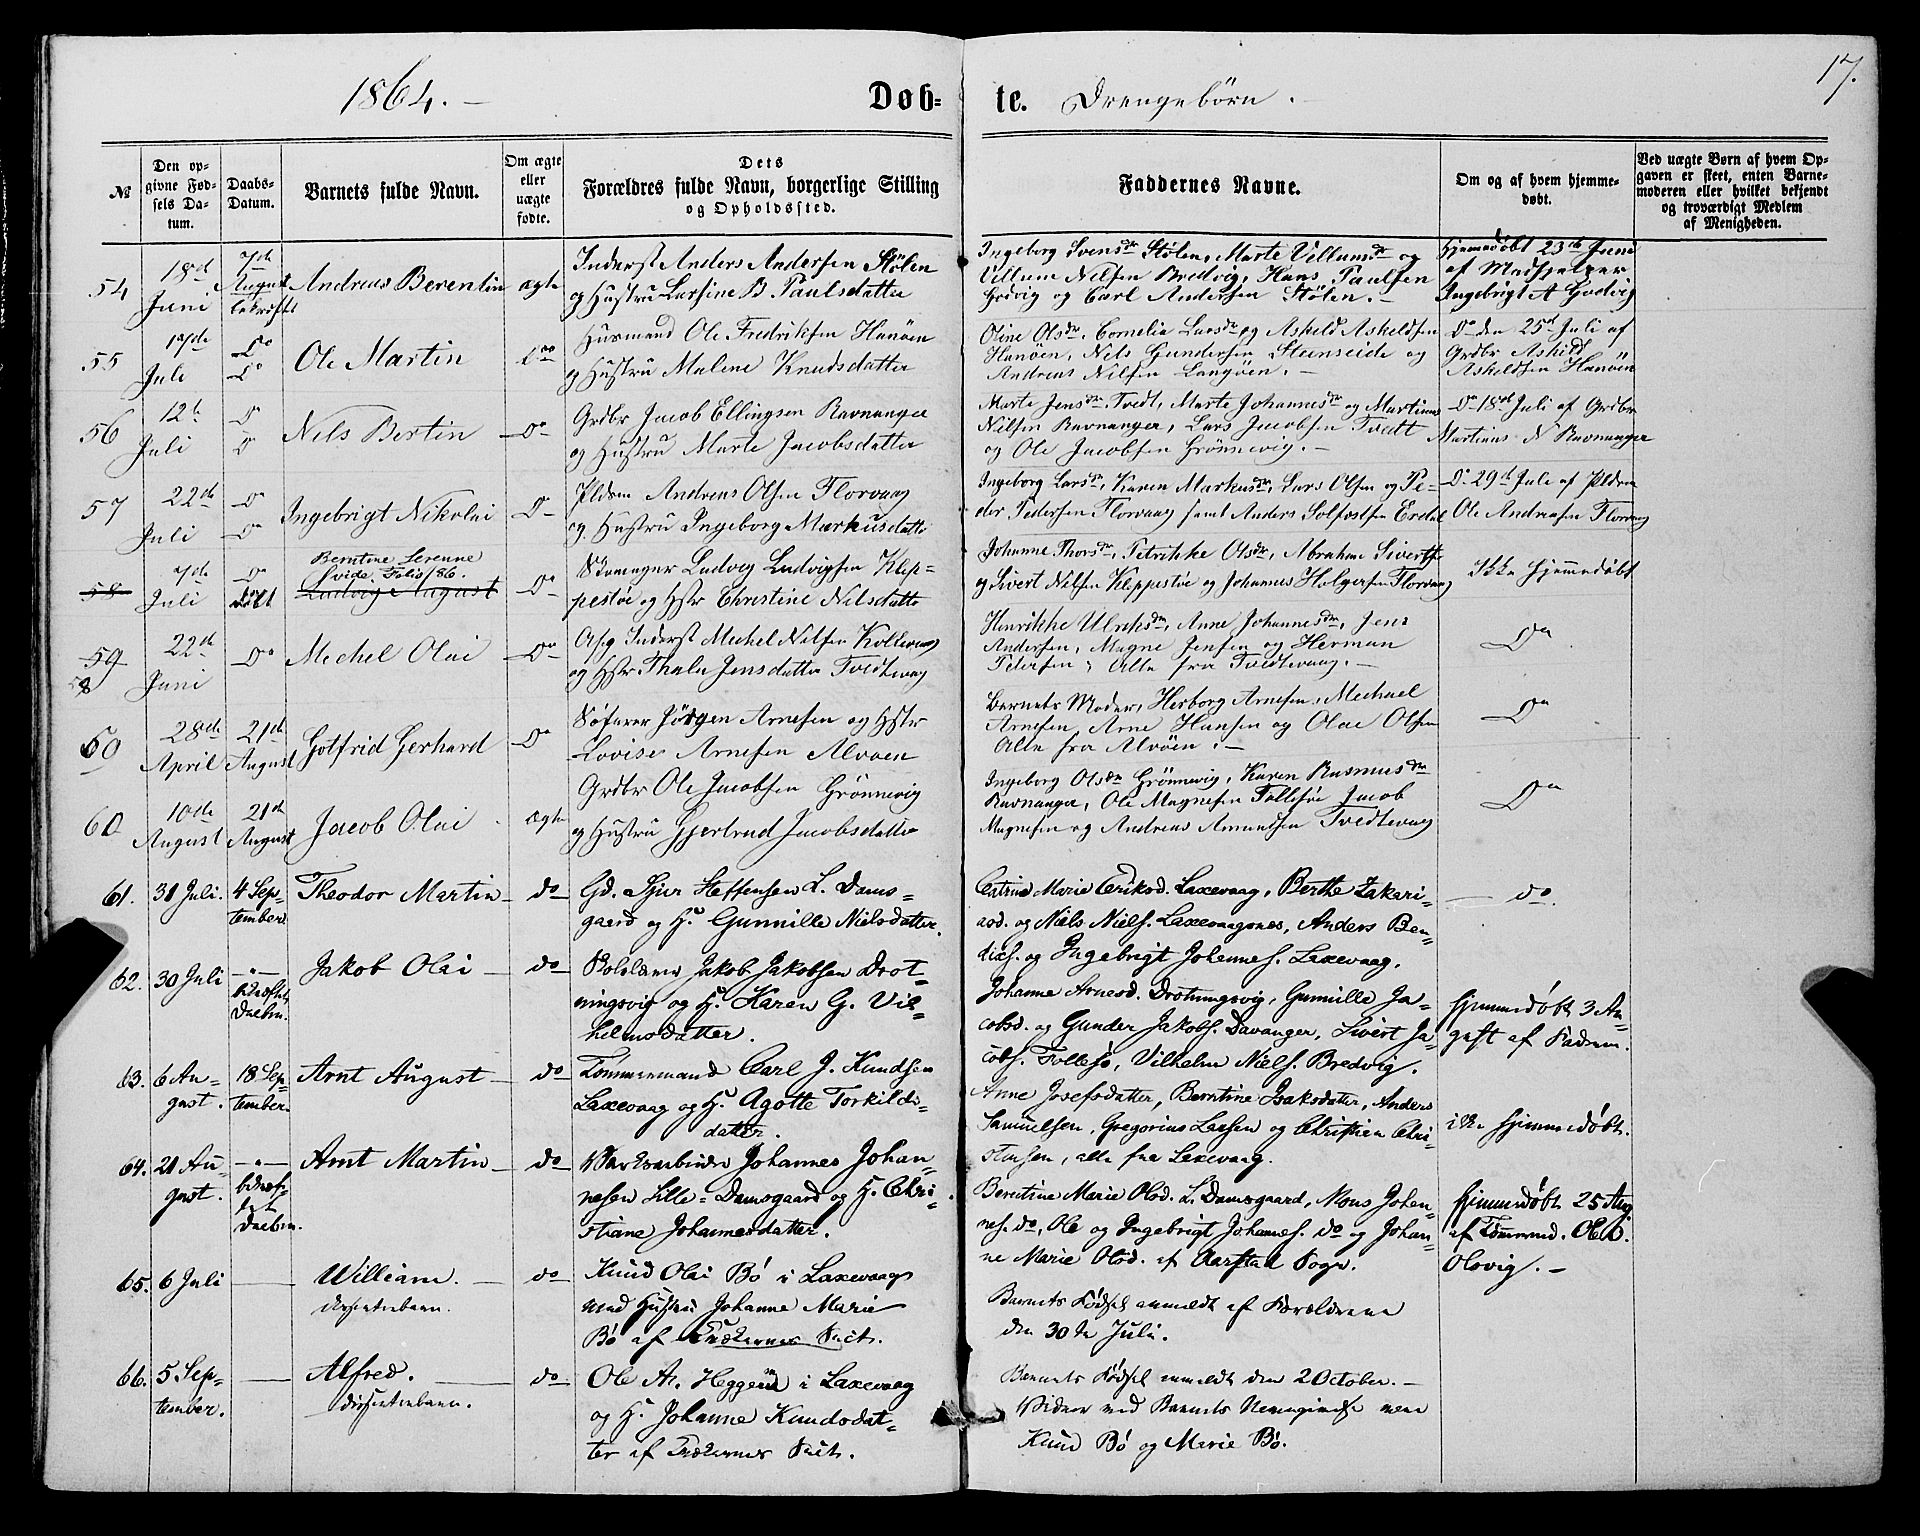 17.
1864. –
Døb-
te. Drengebørn. –
№
Den op-
givne Fød-
sels Da-
tum.
Daabs-
Datum.
Barnets fulde Navn.
Om ægte
eller
uægte
fødte.
Dets
Forældres fulde Navn, borgerlige Stilling
og Opholdssted.
Faddernes Navne.
Om og af hvem hjemme-
døbt.
Ved uægte Børn af hvem Op-
gaven er skeet, enten Barne-
moderen eller hvilket bekjendt
og troværdigt Medlem
af Menigheden.
54
18de
Juni
7de
August
Andreas Berentin
ægte
Inderst Anders Andersen Stølen
og Hustru Larsine B. Paulsdatter
Ingeborg Svensdr Stølen, Marte Villumsdr og
Villum Nilsen Bredvig, Hans Paulsen
Godvig og Carl Andersen Stølen. –
Hjemmedøbt 23de Juni
af Madhjelper
Ingebrigt A Godvig
55
17de
Juli
Do
Do
Ole Martin
Do
Husmand Ole Fredriksen Hanøen
og Hustru Malene Knudsdatter
Oline Olsdr, Cornelia Larsdr og Askeld Askeldsen
Hanøen, Nils Gundersen Steinseide og
Andreas Nilsen Langøen. –
Do den 25de Juli af
Grdbr Askild
Askeldsen Hanøen
56
12te
Juli
Do
Do
Nils Bertin
Do
Grdbr Jacob Ellingsen Ravnanger
og Hustru Marte Jacobsdatter
Marte Jensdr Tvedt, Marte Johannesdr og Martinus
Nilsen Ravnanger, Lars Jacobsen Tvedt
og Ole Jacobsen Grønnevig. –
Do 18de Juli af Grdbr
Martinus N Ravnanger
57
22de
Juli
Do
Do
Ingebrigt Nikolai
Do
Pldsm Andreas Olsen Florvaag
og Hustru Ingeborg Markusdatter
Ingeborg Larsdr, Karen Markusdr, Lars Olsen og Pe-
der Pedersen Florvaag samt Anders Solfestsen Erdal
Do 29de Juli af Pldsm
Ole Andreasen Florvaag
58
7de
Juli
Do
Berntine Serenne
vide Folio 186.
Ludvig August
Do
Skomager Ludvig Ludvigsen Klep-
pestøe og Hstr Christine Nilsdatter
Johanne Thorsdr, Petrikke Olsdr, Abraham Sivertsen
og Sivert Nilsen Kleppestøe og Johannes Holgersen Florvaag
Ikke hjemmedøbt
59
58
22de
Juni
Do
Mechel Olai
Do
Inderst Mechel Nilsen Kollevaag
og Hstr Thale Jensdatter Tvedtevaag
Henrikke Ulriksdr, Anne Johannesdr, Jens
Andersen, Magne Jensen og Herman
Petersen, Alle fra Tvedtevaag. –
Do
60
28de
April
21de
August
Gotfrid Gerhard
Do
Søfarer Jørgen Arnesen og Hstr
Lovise Arnesen Alvøen
Barnets Moder, Herborg Arnesen, Mechael
Arnesen, Arne Hansen og Olae Olsen
Alle fra Alvøen. –
Do
60
10de
August
21de
August
Jacob Olai
ægte
Grdbr Ole Jacobsen Grønnevig
og Hustru Gjertrud Jacobsdatter
Ingeborg Olsdr Grønnevig, Karen Rasmusdr
Ravnanger, Ole Magnesen Follesøe Jacob
Magnesen og Andreas Amundsen Tvedtevaag
Do
61.
31 Juli.
4 Sep-
tember
Theodor Martin
do
Gd. Sjur Steffensen L. Dams-
gaard og H. Gunnille Nielsdatter.
Catrine Marie Eriksd. Laxevaag, Berthe Zakari-
asd. og Niels Niels. Laxevaagsnes, Anders Ben-
dixs. og Ingebrigt Johannes. Laxevaag.
do.
62.
30 Juli
–"–
Daaben.
Jakob Olai
do
Jakob Jakobsen Drot-
ningsvig og H. Karen G. Vil-
helmsdatter.
Johanne Arnesd. Drotningsvig, Gunnille Ja-
cobsd. og Gunder Jakobs. Davanger, Sivert Ja-
cobs. Follesø, Vilhelm Niels. Bredvig.
Hjemmedøbt 3 Au-
gust af Fadren.
63.
6 Au-
gust.
18 Sep-
tember.
Arnt August
do
Tømmermand Carl J. Knudsen
Laxevaag og H. Agotte Torkilds-
datter.
Anne Josefsdatter, Berntine Isaksdatter, Anders
Samuelsen, Gregorius Larsen og Christian Chri-
stensen, alle fra Laxevaag.
ikke hjemmedøbt.
64.
21 Au-
gust.
–"–
Daaben.
Arnt Martin
do
Værksarbeider Johannes Johan-
nesen Lille-Damsgaard og H. Chri-
stiane Johannesdatter.
Berntine Marie Olsd. L. Damsgaard, Mons Johan-
nes. do, Ole og Ingebrigt Johannes. do og Johan-
ne Marie Olsd. af Aarstad Sogn.
Hjemmedøbt 25 Aug
af Tømmerm. Ole
Olsvig. –
65.
6 Juli
William.
dissenterbarn.
do
Knud Olai Bø i Laxevaag
med Hustru Johanne Marie
Bø af Kvækernes Sect.
Barnets Fødsel anmeldt af Forældrene
den 30te Juli.
66.
5 Sep-
tember.
Alfred.
dissenterbarn.
do
Ole A. Heggen i Laxevaag
og H. Johanne Knudsdat-
ter af Kvækernes Sect.
Barnets Fødsel anmeldt den 2 October. –
Vidner ved Barnets Navngivelse vare
Knud Bø og Marie Bø.